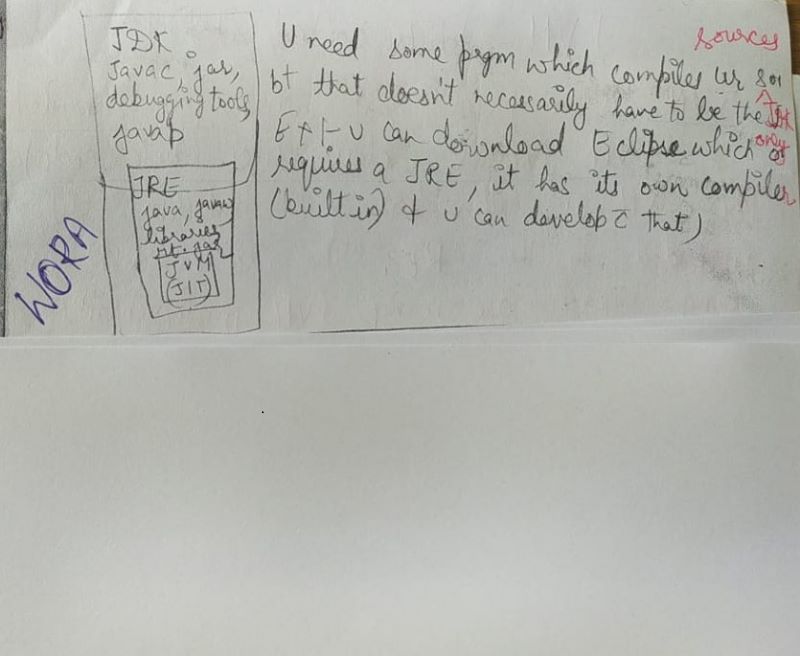 JDK
Javac, jar,
debugging tools,
javap
JRE
java, javaw
libraries
rt.jar
JVM
(JIT)
WORA
sources
U need some prgm which compiles ur
bt that doesn't necessarily have to be the JDK
only
U can download Eclipse which
requires a JRE, it has its own compiler
(built in) & U can develop c̄ that)